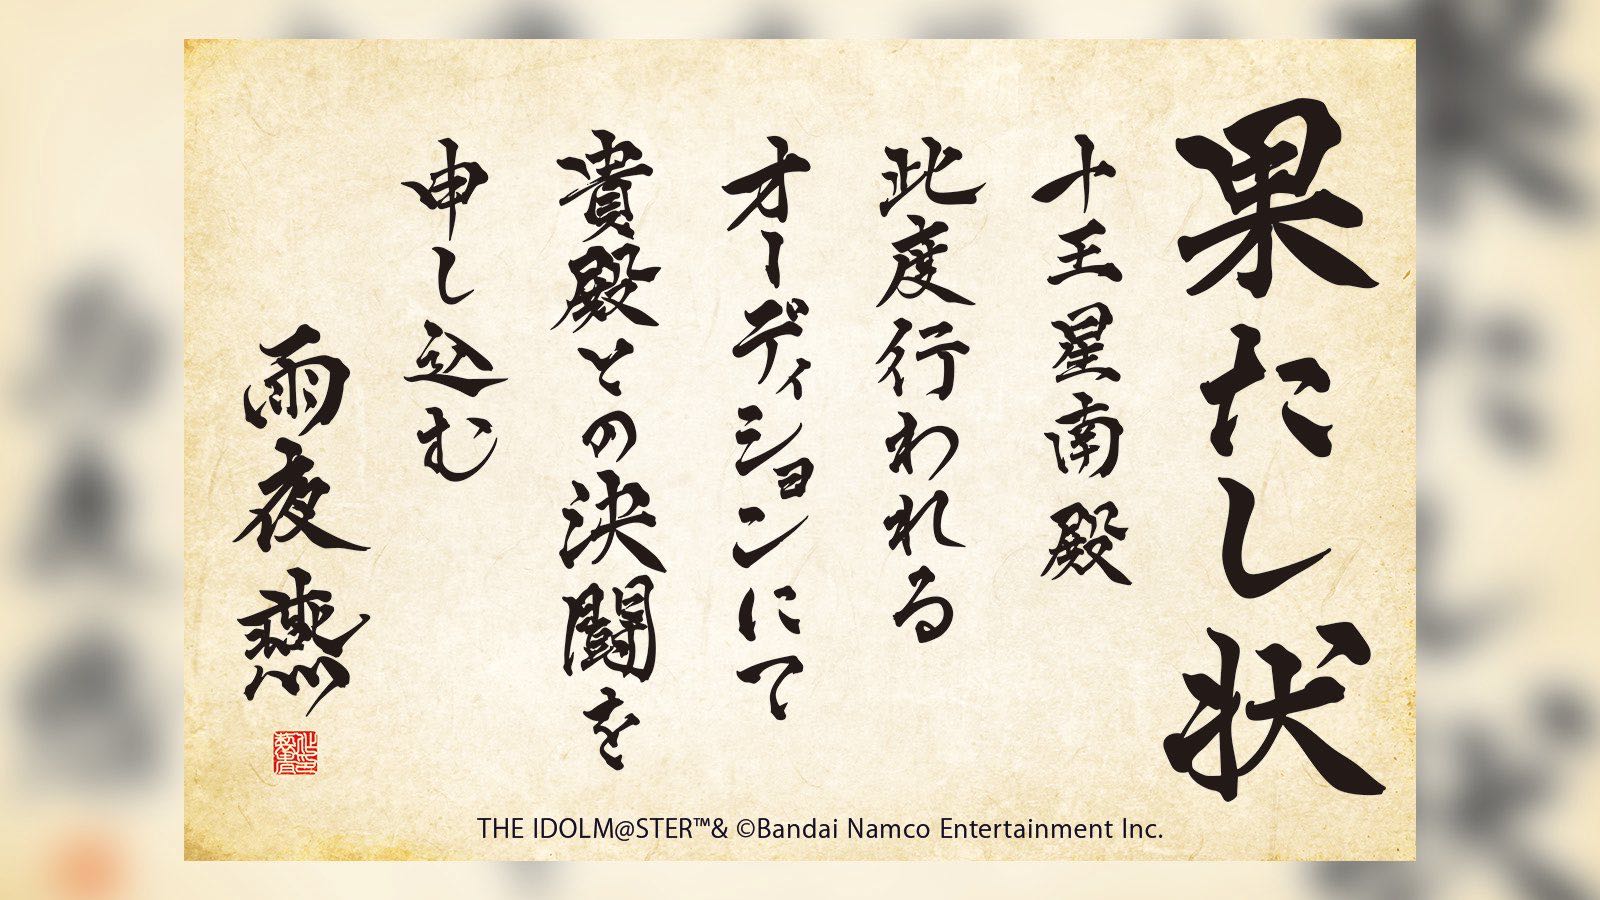 果たし状
十王星南殿
此度行われる
オーディションにて
貴殿との決闘を
申し込む
雨夜燕
THE IDOLM@STER™& ©Bandai Namco Entertainment Inc.